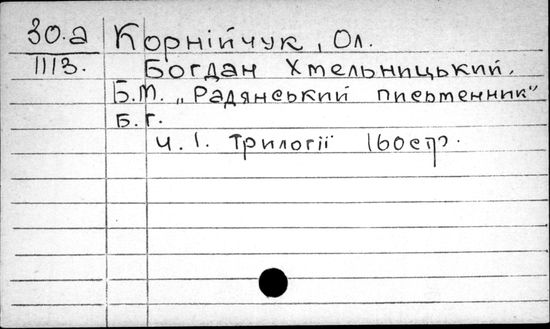 30.а Корнійчук, Ол.
1113. Богдан Хмельницький.
Б.М. „Радянський письменник"
Б.Г.
ч. 1. Трилогії 160стр.